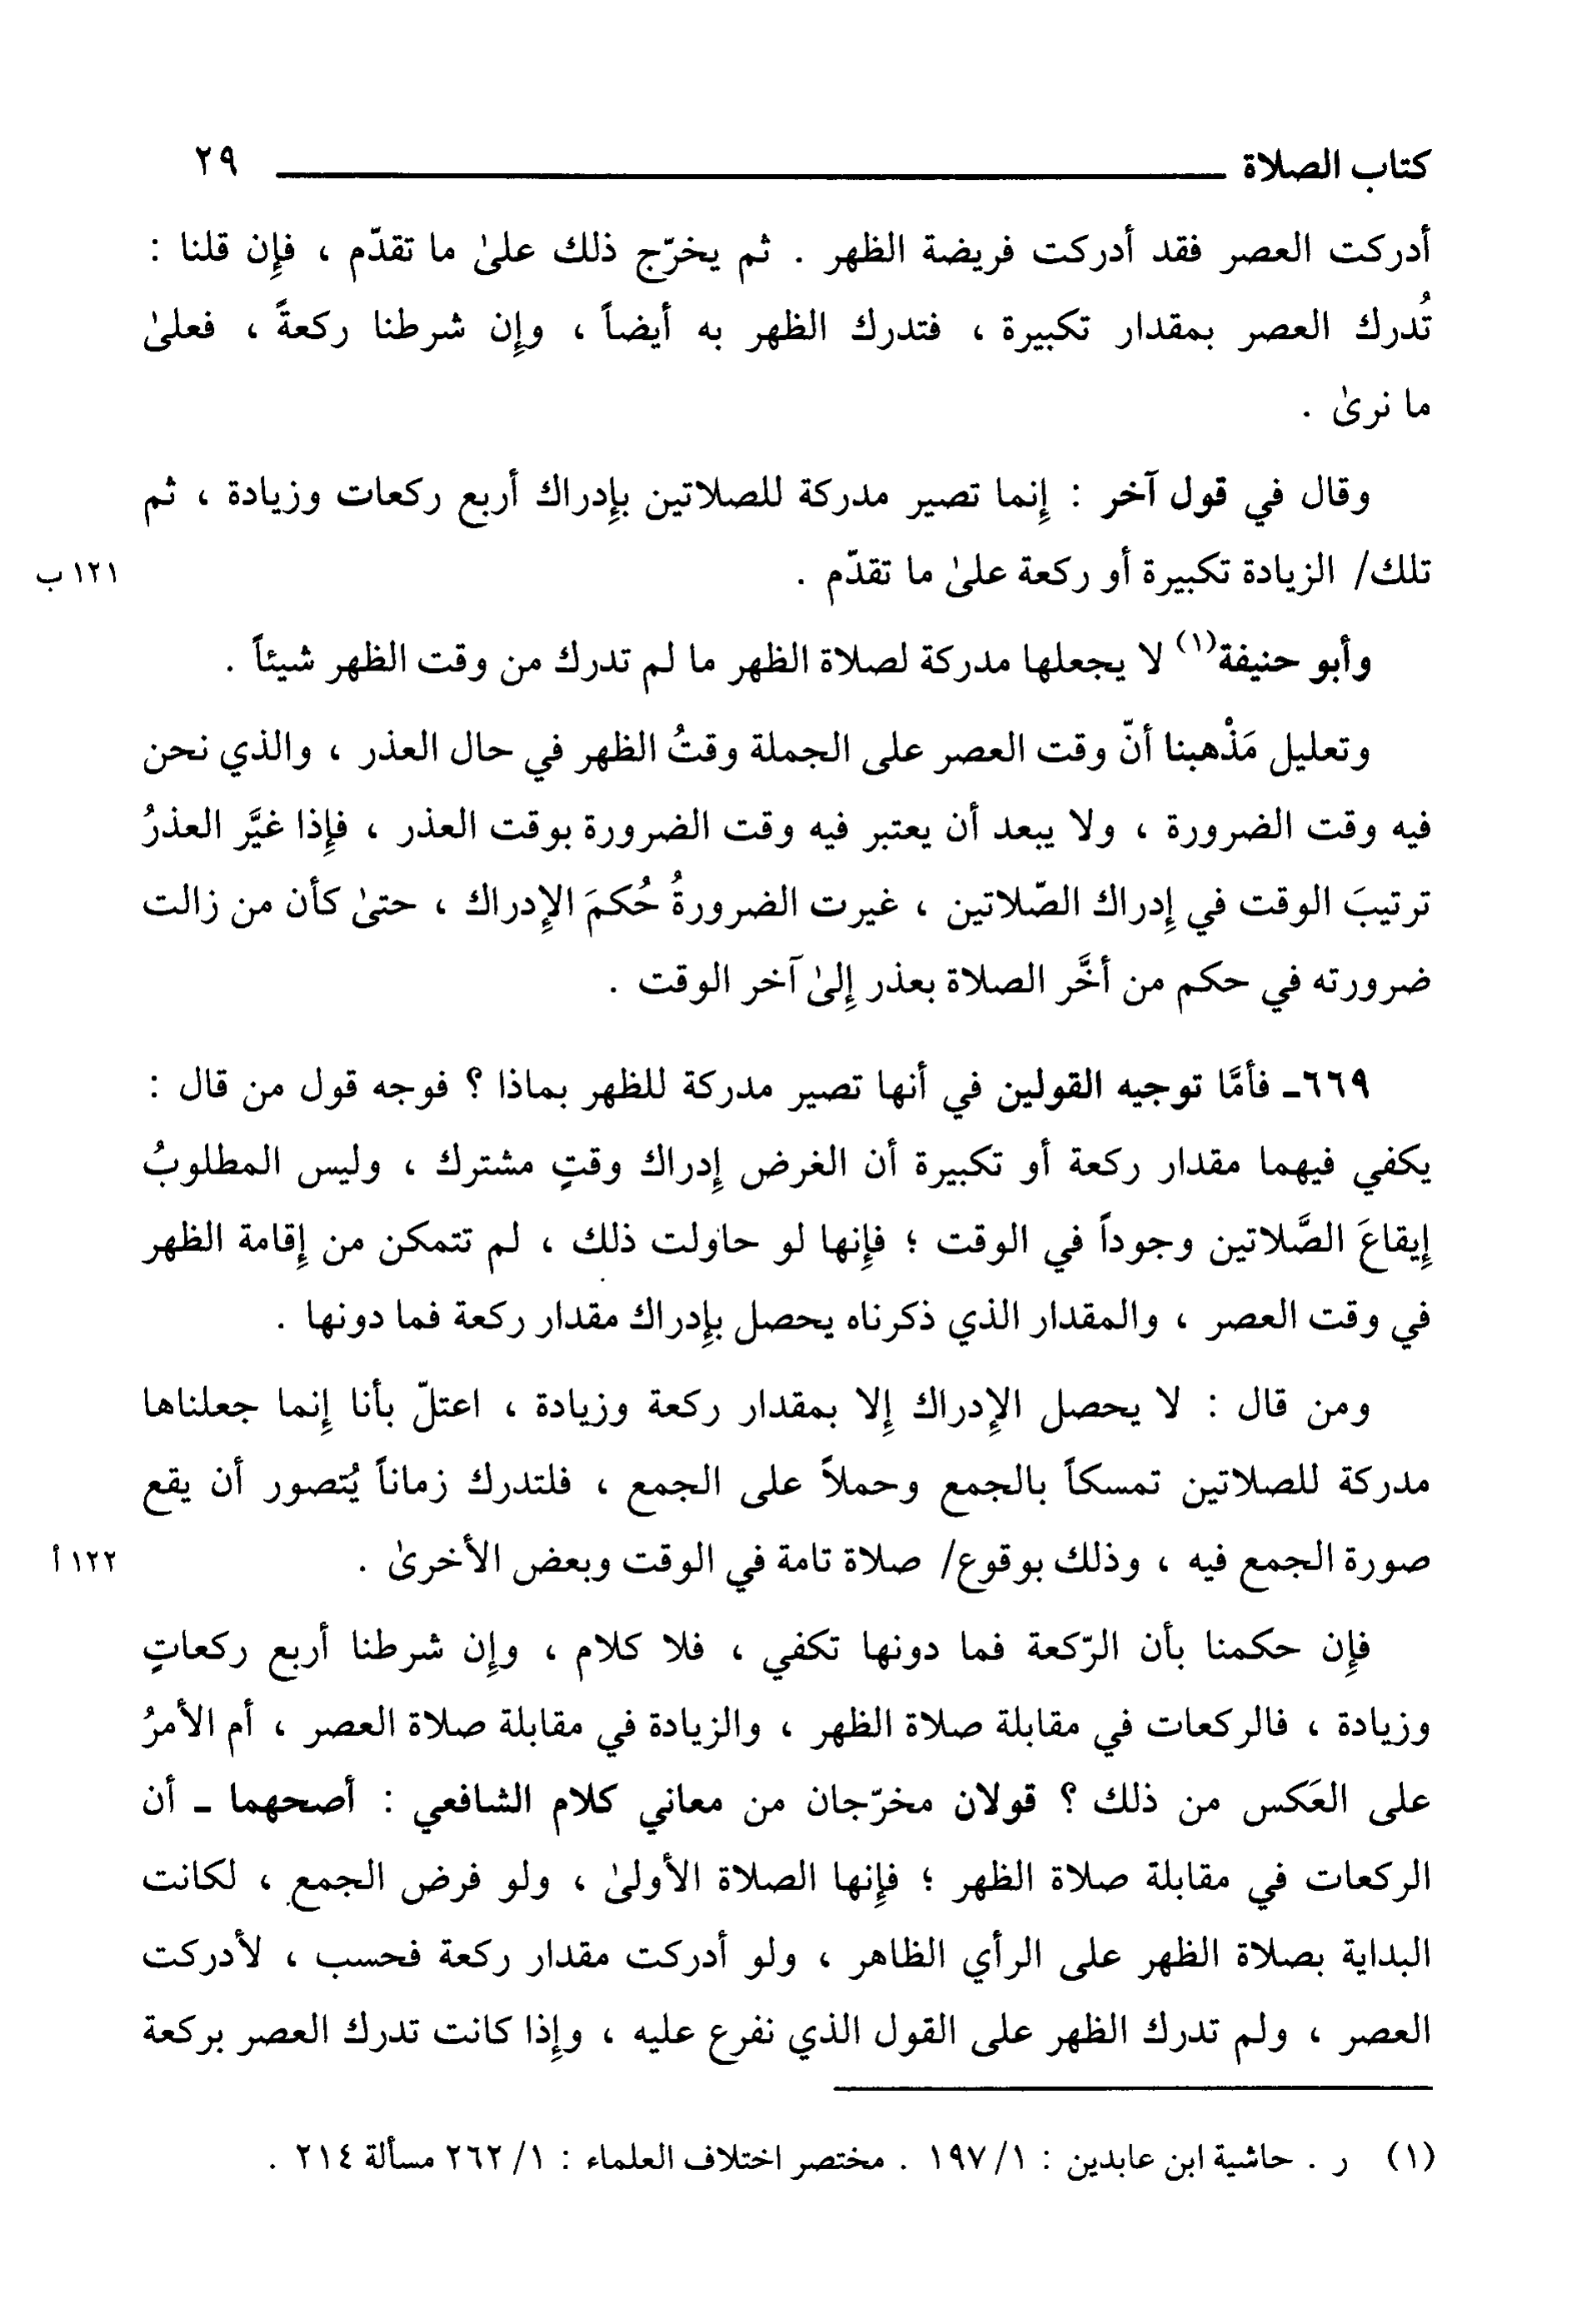 كتاب الصلاة ٢٩
أدركت العصر فقد أدركت فريضة الظهر . ثم يخرّج ذلك علىٰ ما تقدّم ، فإِن قلنا :
تُدرك العصر بمقدار تكبيرة ، فتدرك الظهر به أيضاً ، وإِن شرطنا ركعةً ، فعلىٰ
ما نرىٰ .
وقال في قول آخر : إِنما تصير مدركة للصلاتين بإِدراك أربع ركعات وزيادة ، ثم
تلك/ الزيادة تكبيرة أو ركعة علىٰ ما تقدّم . ١٢١ ب
وأبو حنيفة(١) لا يجعلها مدركة لصلاة الظهر ما لم تدرك من وقت الظهر شيئاً .
وتعليل مَذْهبنا أنّ وقت العصر على الجملة وقتُ الظهر في حال العذر ، والذي نحن
فيه وقت الضرورة ، ولا يبعد أن يعتبر فيه وقت الضرورة بوقت العذر ، فإِذا غيَّر العذرُ
ترتيبَ الوقت في إِدراك الصّلاتين ، غيرت الضرورةُ حُكمَ الإِدراك ، حتىٰ كأن من زالت
ضرورته في حكم من أخَّر الصلاة بعذر إِلىٰ آخر الوقت .
٦٦٩ـ فأمَّا توجيه القولين في أنها تصير مدركة للظهر بماذا ؟ فوجه قول من قال :
يكفي فيهما مقدار ركعة أو تكبيرة أن الغرض إِدراك وقتٍ مشترك ، وليس المطلوبُ
إِيقاعَ الصَّلاتين وجوداً في الوقت ؛ فإِنها لو حاولت ذلك ، لم تتمكن من إِقامة الظهر
في وقت العصر ، والمقدار الذي ذكرناه يحصل بإِدراك مقدار ركعة فما دونها .
ومن قال : لا يحصل الإِدراك إِلا بمقدار ركعة وزيادة ، اعتلّ بأنا إِنما جعلناها
مدركة للصلاتين تمسكاً بالجمع وحملاً على الجمع ، فلتدرك زماناً يُتصور أن يقع
صورة الجمع فيه ، وذلك بوقوع/ صلاة تامة في الوقت وبعض الأخرىٰ . ١٢٢ أ
فإِن حكمنا بأن الرّكعة فما دونها تكفي ، فلا كلام ، وإِن شرطنا أربع ركعاتٍ
وزيادة ، فالركعات في مقابلة صلاة الظهر ، والزيادة في مقابلة صلاة العصر ، أم الأمرُ
على العَكس من ذلك ؟ قولان مخرّجان من معاني كلام الشافعي : أصحهما ـ أن
الركعات في مقابلة صلاة الظهر ؛ فإِنها الصلاة الأولىٰ ، ولو فرض الجمع ، لكانت
البداية بصلاة الظهر على الرأي الظاهر ، ولو أدركت مقدار ركعة فحسب ، لأدركت
العصر ، ولم تدرك الظهر على القول الذي نفرع عليه ، وإِذا كانت تدرك العصر بركعة
(١) ر . حاشية ابن عابدين : ١/ ١٩٧ . مختصر اختلاف العلماء : ١/ ٢٦٢ مسألة ٢١٤ .